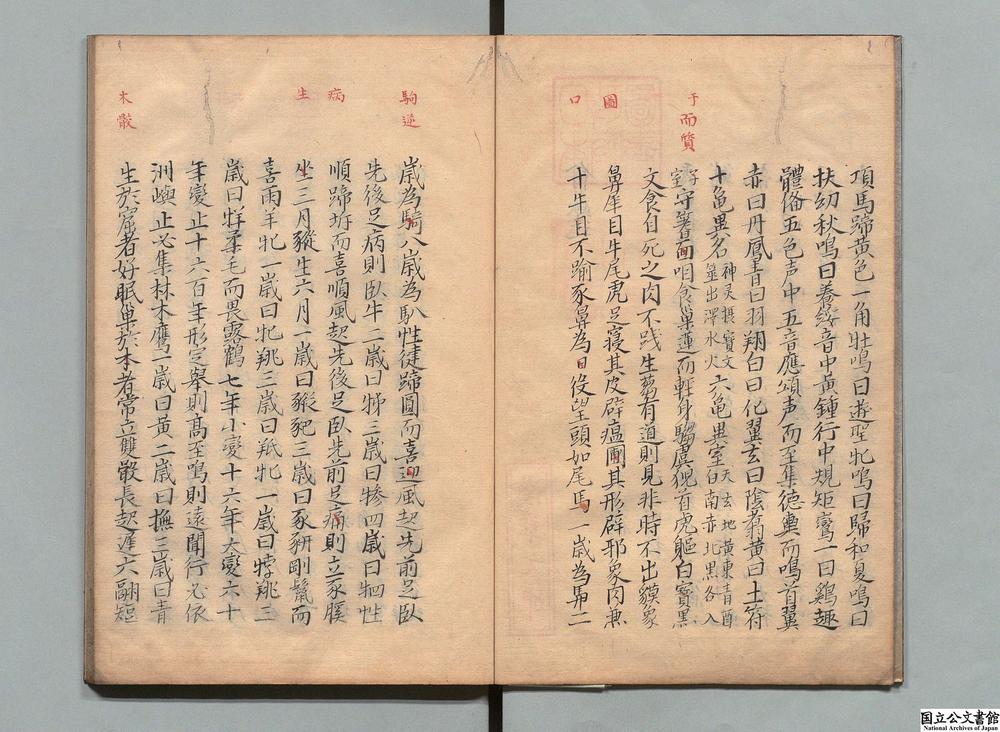 于而質
圖
口
項馬蹄黃色一角牡鳴曰遊聖牝鳴曰歸和夏鳴曰
扶幼秋鳴曰養綏音中黃鍾行中規矩鸞一曰鷄趣
體俻五色声中五音應頌声而至集德輿而鳴首翼
赤曰丹鳳青曰羽翔白曰化翼玄曰陰翥黃曰土符
十龜異名神灵摂宝文筮山澤水火六龜異室天玄地黃東青酉白南赤北黒各入
文食自死之肉不践生蒭有道則見非時不出貘象
鼻犀目牛尾虎足寝其皮辟瘟圖其形辟邪象肉兼
十牛目不踰豕鼻為口役望頭如尾馬一歲為馬二
駒逆
病
生
木骰
歲為騎八歲為馭性徒蹄圓而喜迎風起先前足臥
先後足病則臥牛二歲曰㸬三歲曰犙四歲曰牭性
順蹄坼而喜順風起先後足臥先前足病則立豕
生三月豵生六月一歲曰豵豝三歲曰豕豜剛鬣而
喜雨羊牝一歲曰牝㹗三歲曰羝牝一歲曰㹀㹗三
歲曰牂柔毛而畏露鶴七年小變十六年大變六十
年變止十六百年形定舉則髙至鳴則遠聞行必依
洲嶼止必集林木鷹一歲曰黃二歲曰撫三歲曰青
生於窟者好眠巣於木者常立雙骰長起遲六翮短
国立公文書館
National Archives of Japan